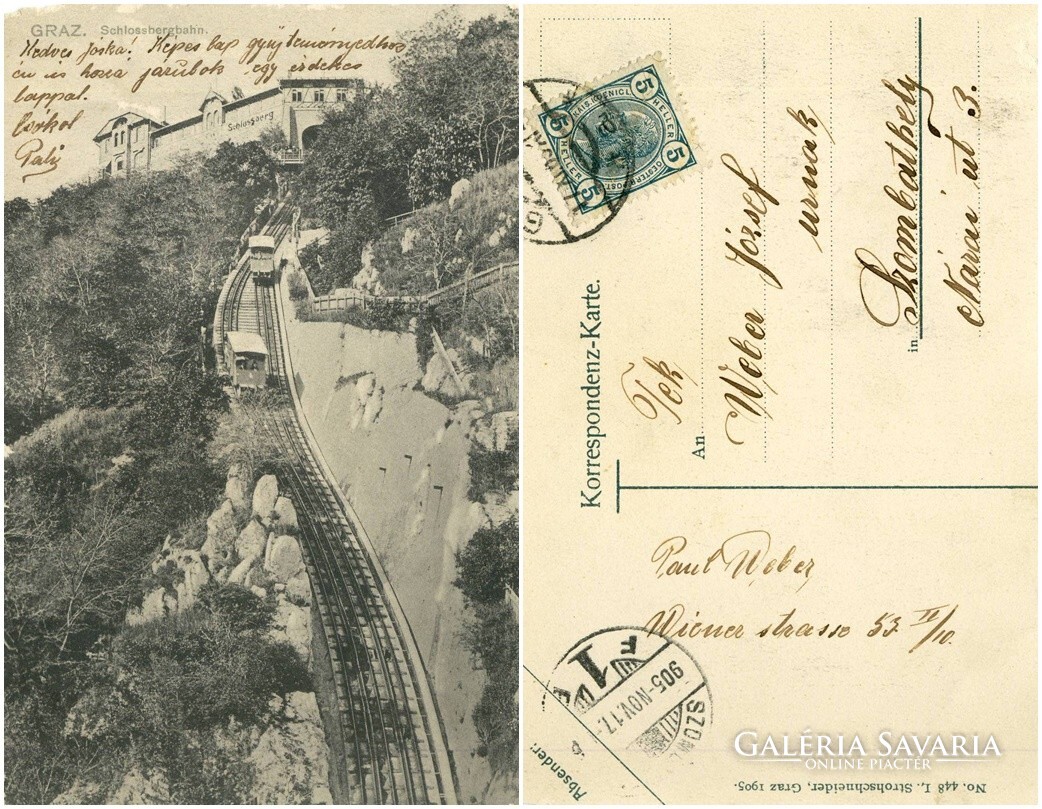 GRAZ. Schlossbergbahn.
Kedves Jóska! Képes lap gyüjteményedhez
én is hozzá járulok egy érdekes
lappal.
Csókol
Pali
Schlossberg
5 HELLER 5
KAIS. KOENIGL.
OESTERR. POST.
5 HELLER 5
GRAZ
Korrespondenz-Karte.
Tek
An
Weber József
urnak
in Szombathely
Nárai ut 3.
Paul Weber
Wiener strasse 53 II/10.
905-NOV.17.
SZOM
F 1
Absender:
No. 448 L. Strohschneider, Graz 1905.
GALÉRIA SAVARIA
ONLINE PIACTÉR